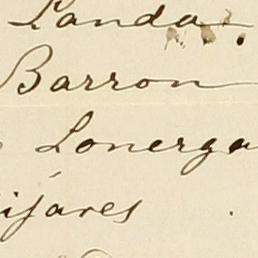 Landa.
Barron
Lonerga
ijares